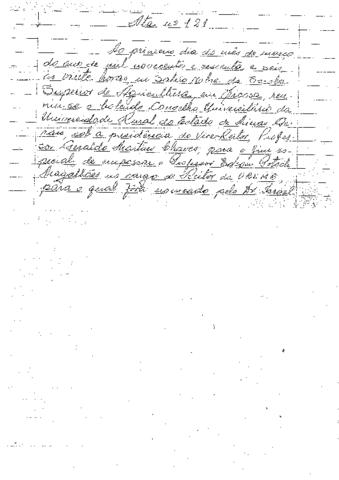 Ata nº 121
Ao primeiro dia do mês de março
do ano de mil novecentos e sessenta e seis
às vinte horas, no Salão Nobre da Escola
Superior de Agricultura, em Viçosa, reu-
niu-se o Conselho Universitário da
Universidade Rural do Estado de Minas Ge-
rais, sob a presidência do Vice-Reitor, Profes-
sor Geraldo Martins Chaves, para o fim es-
pecial de empossar o Professor Edson Potsch
Magalhães no cargo de Reitor da UREMG,
para o qual fora nomeado pelo Dr. Israel